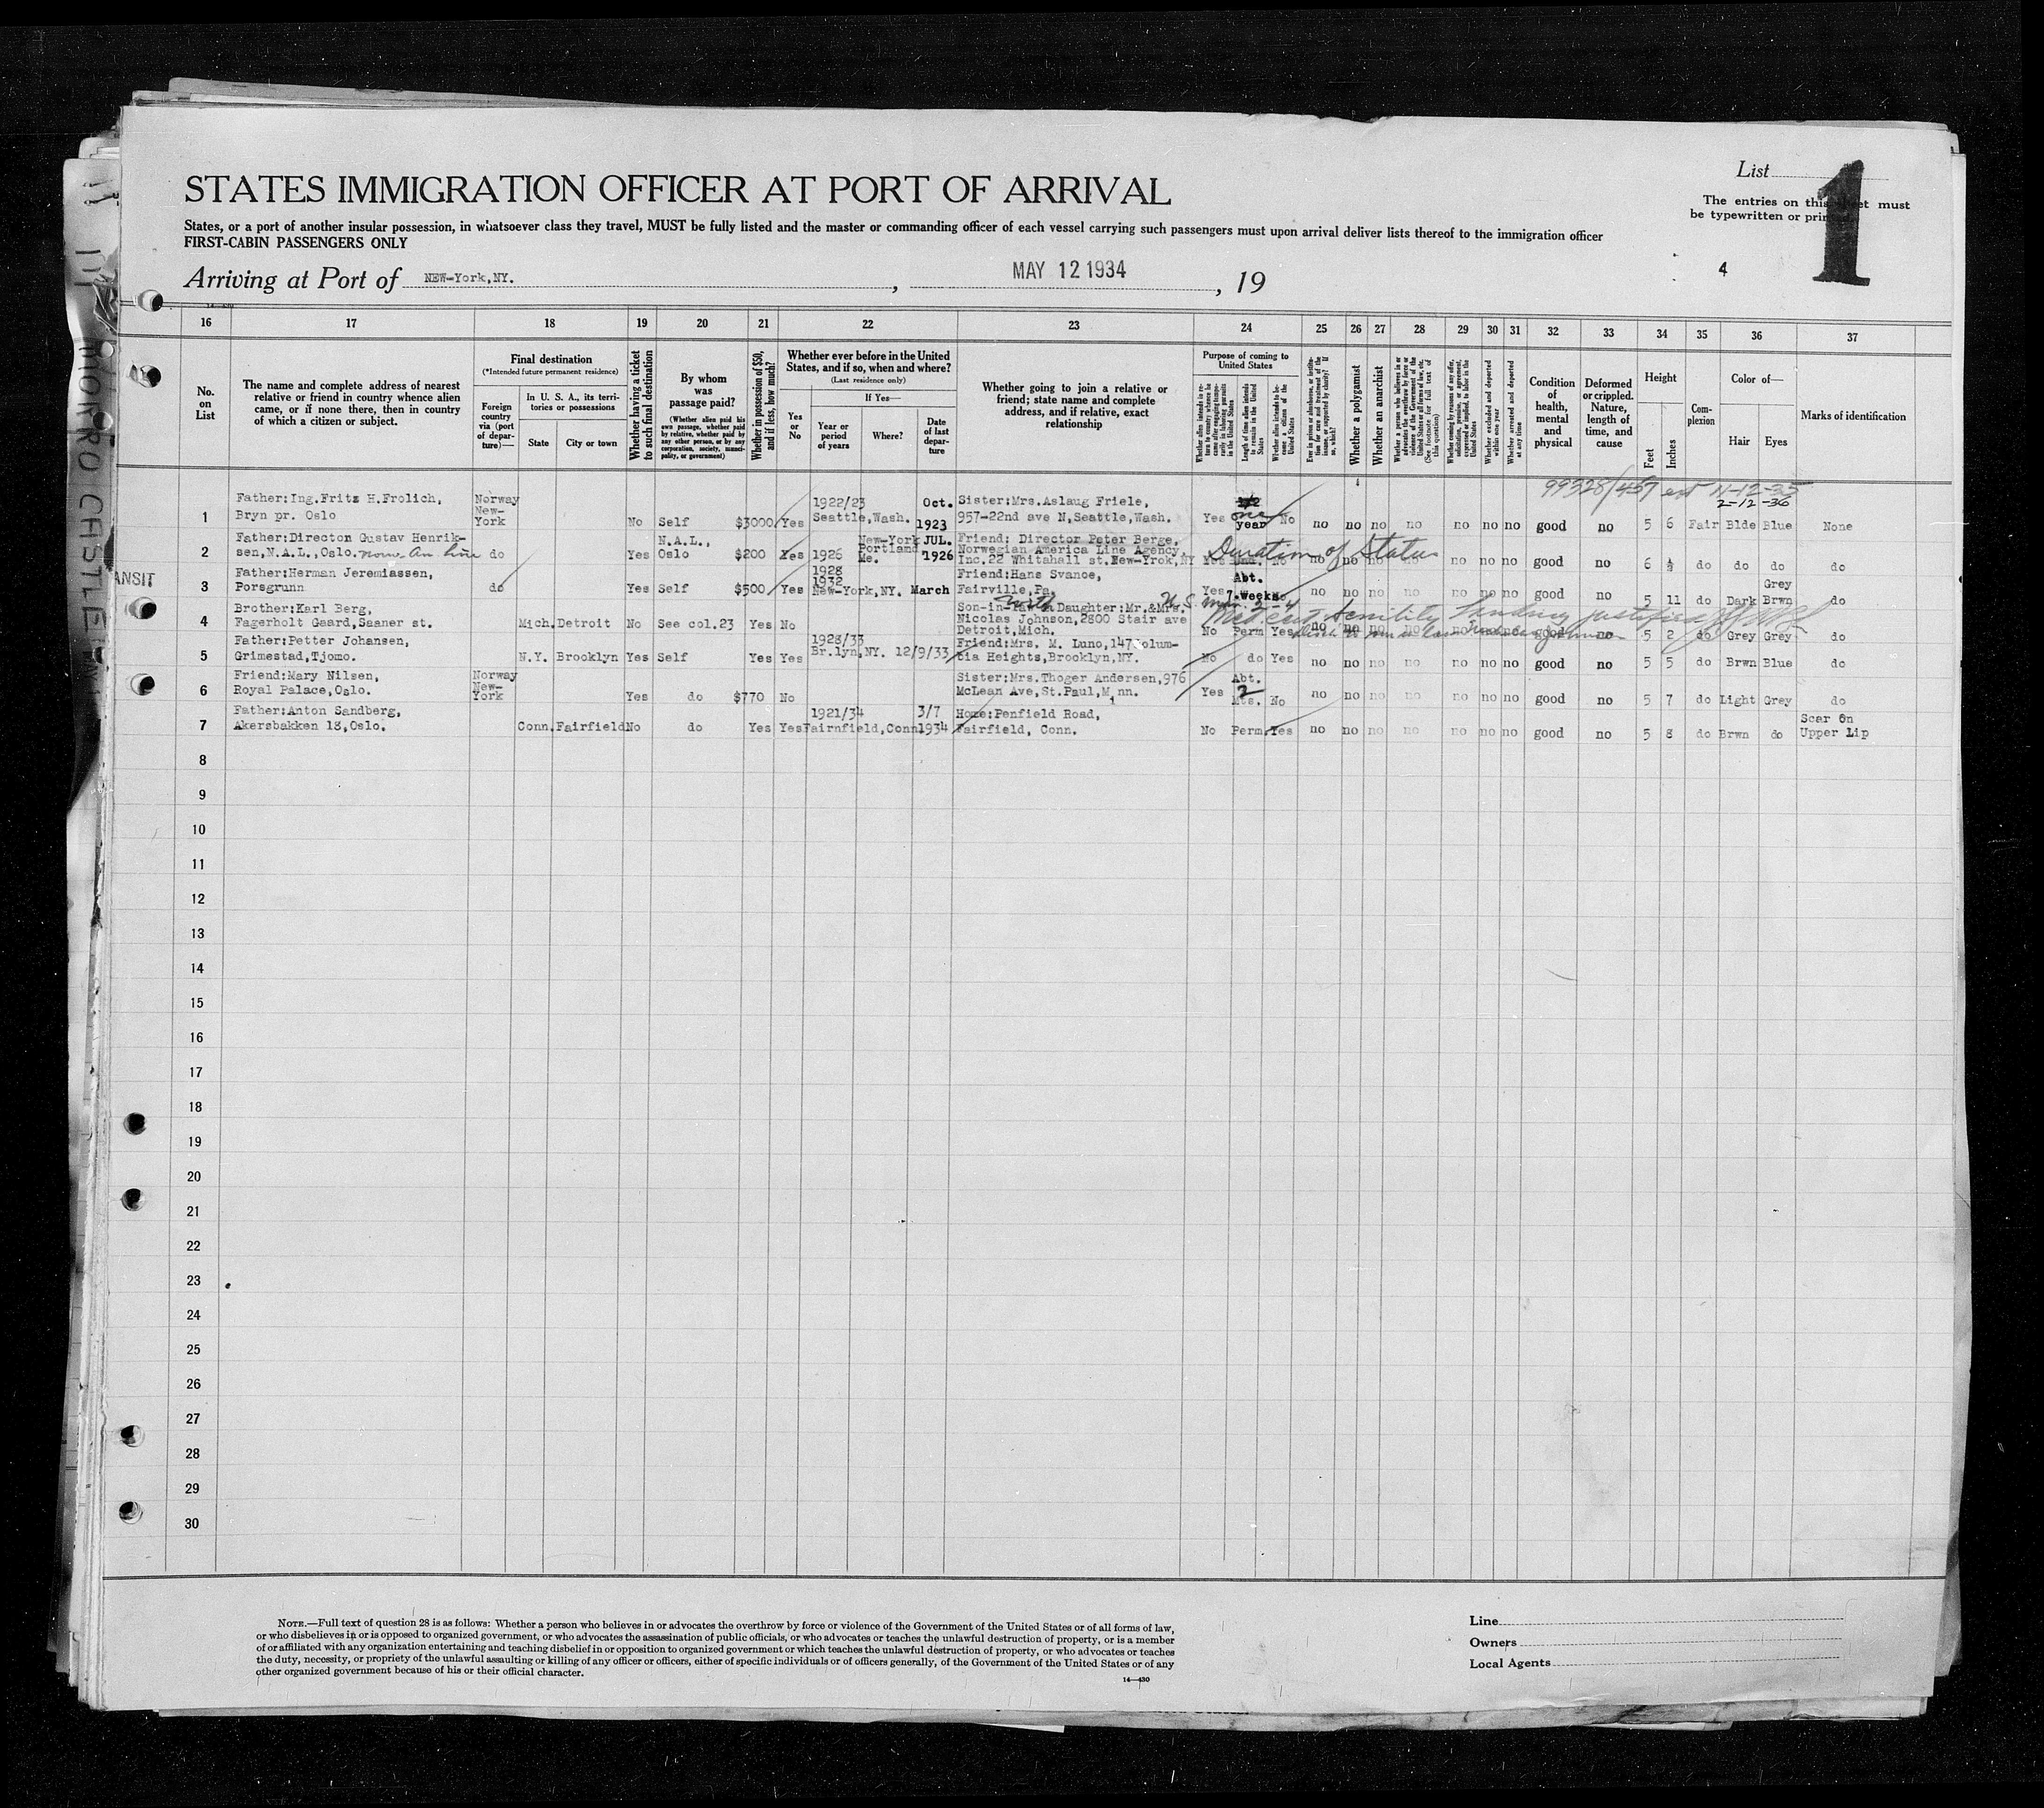 STATES IMMIGRATION OFFICER AT PORT OF ARRIVAL
List
1
The entries on this sheet must
be typewritten or printed
States, or a port of another insular possession, in whatsoever class they travel, MUST be fully listed and the master or commanding officer of each vessel carrying such passengers must upon arrival deliver lists thereof to the immigration officer
FIRST-CABIN PASSENGERS ONLY
Arriving at Port of NEW-York,NY. , MAY 12 1934 , 19
4
16 17 18 19 20 21 22 23 24 25 26 27 28 29 30 31 32 33 34 35 36 37
No. on List
The name and complete address of nearest relative or friend in country whence alien came, or if none there, then in country of which a citizen or subject.
Final destination
(*Intended future permanent residence)
Foreign country via (port of departure)—
In U. S. A., its territories or possessions
State
City or town
Whether having a ticket to such final destination
By whom was passage paid?
(Whether alien paid his own passage, whether paid by relative, whether paid by any other person, or by any corporation, society, municipality, or government)
Whether in possession of $50, and if less, how much?
Whether ever before in the United States, and if so, when and where?
(Last residence only)
Yes or No
If Yes—
Year or period of years
Where?
Date of last departure
Whether going to join a relative or friend; state name and complete address, and if relative, exact relationship
Purpose of coming to United States
Whether alien intends to return to country whence he came after engaging temporarily in laboring pursuits in the United States
Length of time alien intends to remain in the United States
Whether alien intends to become a citizen of the United States
Ever in prison or almshouse, or institution for care and treatment of the insane, or supported by charity? If so, which?
Whether a polygamist
Whether an anarchist
Whether a person who believes in or advocates the overthrow by force or violence of the Government of the United States or all forms of law, etc. (See footnote for full text of this question)
Whether coming by reason of any offer, solicitation, promise, or agreement, expressed or implied, to labor in the United States
Whether excluded and deported within one year
Whether arrested and deported at any time
Condition of health, mental and physical
Deformed or crippled. Nature, length of time, and cause
Height
Feet
Inches
Complexion
Color of—
Hair
Eyes
Marks of identification
99328/457 ext 11-12-35
2-12-36
1 Father:Ing.Fritz H.Frolich, Bryn pr. Oslo Norway New-York No Self $3000 Yes 1922/23 Seattle,Wash. Oct. 1923 Sister:Mrs.Aslaug Friele, 957-22nd ave N,Seattle,Wash. Yes one year No no no no no no no no good no 5 6 Fair Blde Blue None
2 Father:Director Gustav Henrik-sen,N.A.L.,Oslo. do Yes N.A.L., Oslo $200 Yes 1926 New-York Portland Me. JUL. 1926 Friend: Director Peter Berge, Norwegian America Line Agency, Inc.22 Whitahall st.New-Yrok,NY Yes Duration of Status No no no no no no no no good no 6 ½ do do do do
ANSIT
3 Father:Herman Jeremiassen, Porsgrunn do Yes Self $500 Yes 1928 1932 New-York,NY. March Friend:Hans Svanoe, Fairville,Pa. Yes Abt. 7.weeks No no no no no no no no good no 5 11 do Dark Grey Brwn do
4 Brother:Karl Berg, Fagerholt Gaard,Saaner st. Mich. Detroit No See col.23 Yes No Son-in- Daughter:Mr.&Mrs. Nicolas Johnson,2800 Stair ave Detroit,Mich. No Perm Yes no no no no no no no good no 5 2 do Grey Grey do
Med. cert Senility Landing justified
5 Father:Petter Johansen, Grimestad,Tjomo. N.Y. Brooklyn Yes Self Yes Yes 1928/33 Br.lyn,NY. 12/9/33 Friend:Mrs. M. Luno,147 Colum-bia Heights,Brooklyn,NY. No do Yes no no no no no no no good no 5 5 do Brwn Blue do
6 Friend:Mary Nilsen, Royal Palace,Oslo. Norway New-York Yes do $770 No Sister:Mrs.Thoger Andersen,976 McLean Ave,St.Paul,Minn. Yes Abt. 2 Mts. No no no no no no no no good no 5 7 do Light Grey do
7 Father:Anton Sandberg, Akersbakken 18,Oslo. Conn. Fairfield No do Yes Yes 1921/34 Fairnfield,Conn 3/7 1934 Home:Penfield Road, Fairfield, Conn. No Perm. Yes no no no no no no no good no 5 8 do Brwn do Scar On Upper Lip
8
9
10
11
12
13
14
15
16
17
18
19
20
21
22
23
24
25
26
27
28
29
30
NOTE.—Full text of question 28 is as follows: Whether a person who believes in or advocates the overthrow by force or violence of the Government of the United States or of all forms of law,
or who disbelieves in or is opposed to organized government, or who advocates the assassination of public officials, or who advocates or teaches the unlawful destruction of property, or is a member
of or affiliated with any organization entertaining and teaching disbelief in or opposition to organized government or which teaches the unlawful destruction of property, or who advocates or teaches
the duty, necessity, or propriety of the unlawful assaulting or killing of any officer or officers, either of specific individuals or of officers generally, of the Government of the United States or of any
other organized government because of his or their official character.
14—430
Line
Owners
Local Agents
MORRO CASTLE